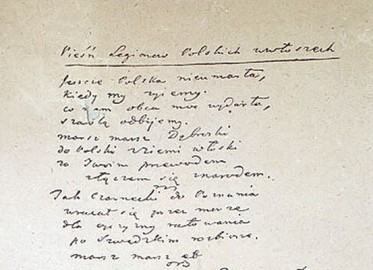 Pieśń Legionów Polskich we Włoszech
Jeszcze Polska nie umarła,
kiedy my żyjemy.
co nam obca moc wydarła,
szablą odbijemy.
marsz marsz Dąbrowski
do Polski z ziemi włoski
za Twoim przewodem
złączem się z narodem.
Jak Czarnecki do Poznania
wracał się przez morze
dla ojczyzny ratowania
po Szwedzkim rozbiorze.
marsz marsz etc